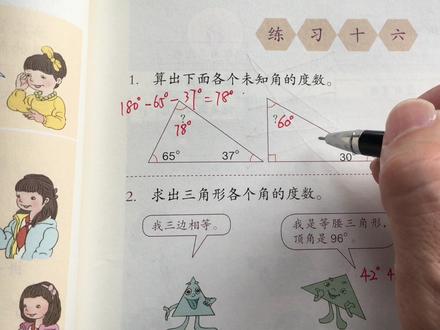 练习十六
1. 算出下面各个未知角的度数。
180°-65°-37°=78°
?
78°
65°
37°
?
60°
30°
2. 求出三角形各个角的度数。
我三边相等。
我是等腰三角形,
顶角是96°。
42° 4